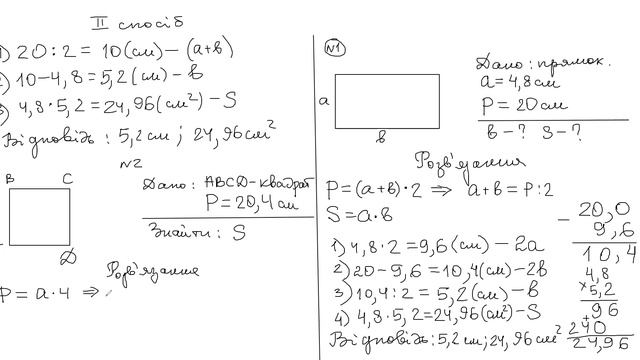 II спосіб
1) 20 : 2 = 10(см) — (a+b)
10 - 4,8 = 5,2(см) - b
4,8 · 5,2 = 24,96(см²) - S
Відповідь : 5,2 см ; 24,96 см²
N2
B C
Дано: ABCD - квадрат
P = 20,4 см
Знайти : S
D
Розв'язання
P = a · 4 ⇒
N1
Дано : прямок.
a = 4,8 см
P = 20 см
b - ? S - ?
a
b
Розв'язання
P = (a+b) · 2 ⇒ a+b = P : 2
S = a · b
1) 4,8 · 2 = 9,6(см) — 2a
2) 20 - 9,6 = 10,4(см) - 2b
3) 10,4 : 2 = 5,2(см) - b
4) 4,8 · 5,2 = 24,96(см²) - S
Відповідь : 5,2 см; 24,96 см²
- 20,0
9,6
10,4
4,8
× 5,2
+ 96
240
24,96